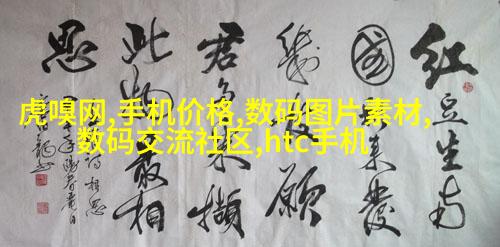 虎嗅网,手机价格,数码图片素材,
数码交流社区,htc手机
红豆生南
國秋来發
幾枝願
君多采撷
此物最相
思